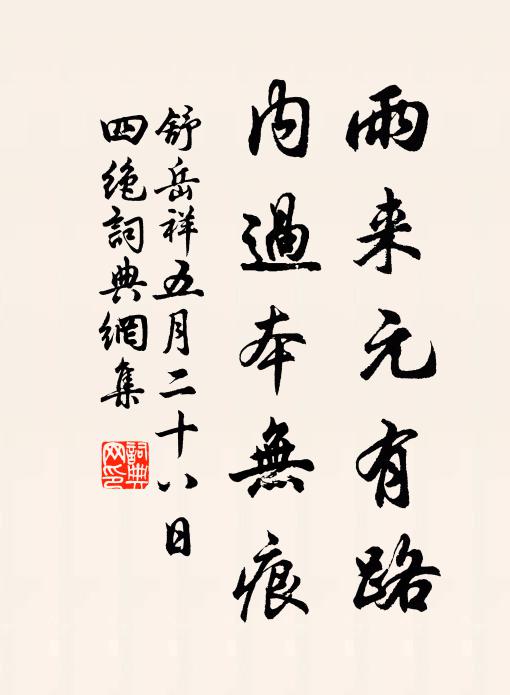 雨来元有路
内過本無痕
舒岳祥五月二十八日
四絶詞典網集
詞典
网印